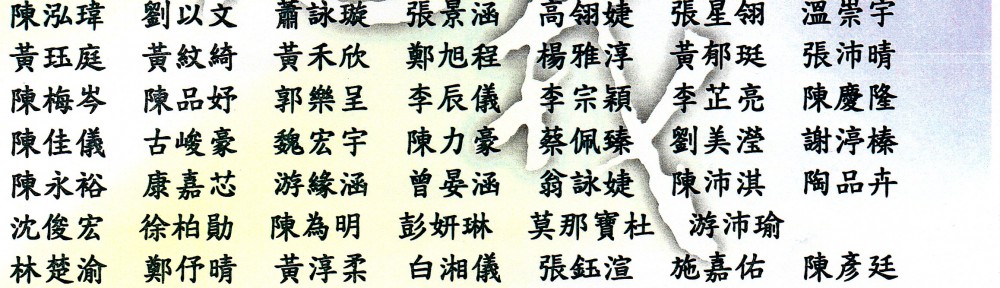 陳泓瑋 劉以文 蕭詠璇 張景涵 高翎婕 張星翎 溫崇宇
黃珏庭 黃紋綺 黃禾欣 鄭旭程 楊雅淳 黃郁珽 張沛晴
陳梅岑 陳品妤 郭樂呈 李辰儀 李宗穎 李芷亮 陳慶隆
陳佳儀 古峻豪 魏宏宇 陳力豪 蔡佩臻 劉美瀅 謝渟榛
陳永裕 康嘉芯 游緣涵 曾晏涵 翁詠婕 陳沛淇 陶品卉
沈俊宏 徐柏勛 陳為明 彭妍琳 莫那寶杜 游沛瑜
林楚渝 鄭伃晴 黃淳柔 白湘儀 張鈺渲 施嘉佑 陳彥廷